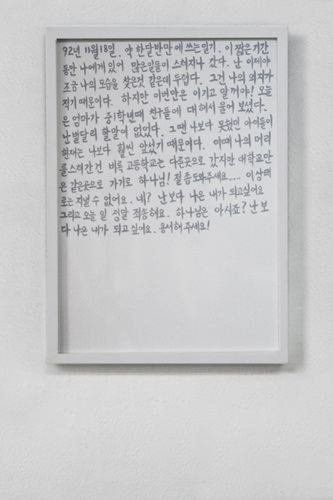 92년 11월 18일. 약 한달반만에 쓰는일기. 이 짧은 기간
동안 나에게 있어 많은일들이 스쳐지나 갔다. 난 이제야
조금 나의 모습을 찾은것 같은데 두렵다. 그건 나의 의지가
적기 때문이다. 하지만 이번만은 이기고 말꺼야! 오늘
은 엄마가 중1학년때 친구들에 대해서 물어 보셨다.
난 별달리 할말이 없었다. 그땐 나보다 못했던 아이들이
현재는 나보다 훨씬 앞섰기 때문이다. 이때 나의 머리
를스쳐간건 비록 고등학교는 다른곳으로 갔지만 대학교만
은 같은곳으로 가기로 하나님! 절 좀 도와주세요.... 이상태
로는 지낼 수 없어요. 네? 난 보다 나은 내가 되고싶어요
그리고 오늘 일 정말 죄송해요. 하나님은 아시죠? 난 보
다 나은 내가 되고 싶어요. 용서해 주세요!